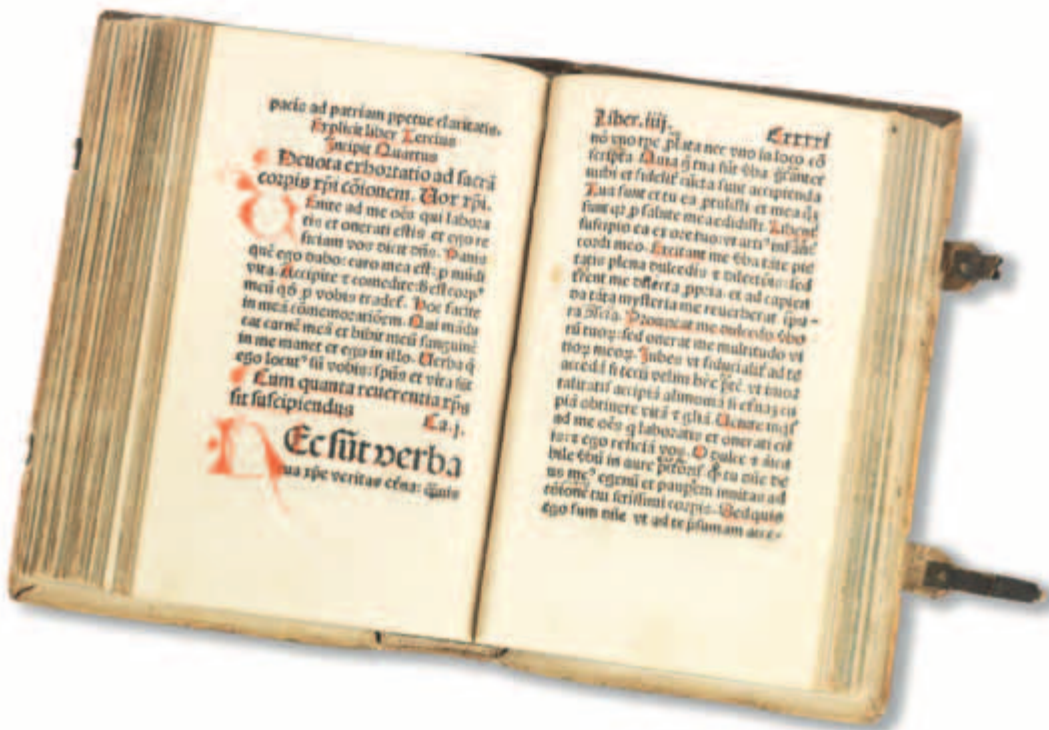 pacis ad patriam ppetue claritatis.
Explicit liber Tercius
Incipit Quartus
Deuota exhortatio ad sacrā
corpis xpi cōionem. Uor xpi.
Enite ad me oēs qui labora
tis et onerati estis et ego re
ficiam vos dicit dn̄s. Panis
quē ego dabo: caro mea est: p mūdi
vita. Accipite ⁊ comedite: h est corpꝰ
meū qd̄ p vobis tradet. Hoc facite
in meā cōmemoratiōem. Qui mādu
cat carnē meā et bibit meū sanguinē
in me manet et ego in illo. Uerba q̄
ego locutꝰ sū vobis: spūs et vita sūt
Cum quanta reuerentia xp̄s
sit suscipiendus Ca.j.
Ec sūt verba
tua xpe veritas etna: q̄uis
Liber.iiij.
nō vno tpe plata nec vno in loco cō
scripta
mihi et fidelit cūcta sunt accipienda
Tua sunt et tu ea ptulisti et mea
sunt p salute mea edidisti. Libent
suscipio ea ex ore tuo: vt
cordi meo. Excitant me tāte pie
tatis plena dulcedis ⁊ dilectōis: sed
trent me delicta ppria. et ad capien
da tāta mysteria me reuerberat ipu-
ra Prouocat me dulcedo
tuoꝝ: sed onerat me multitudo vi
tioꝝ meoꝝ. Jubes vt fiducialit ad te
accedā si tecū velim hr̄e vt īmor
talitatis accipiā alimoniā si etnaꝫ cu
piā obtinere vitā ⁊ gliā. Uenite inqs
ad me oēs q laboratis et onerati esti
s: et ego reficiā vos. O dulce ⁊ amica
bile in aure q tu dn̄e de
us meꝰ egenū et paupem inuitas ad
cōionē tui sctissimi corpis. Sed quis
ego sum dn̄e vt ad te psumam acce-